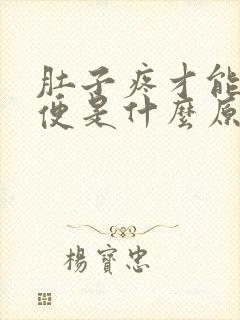 肚子疼才能
便是什麼原
楊寶忠